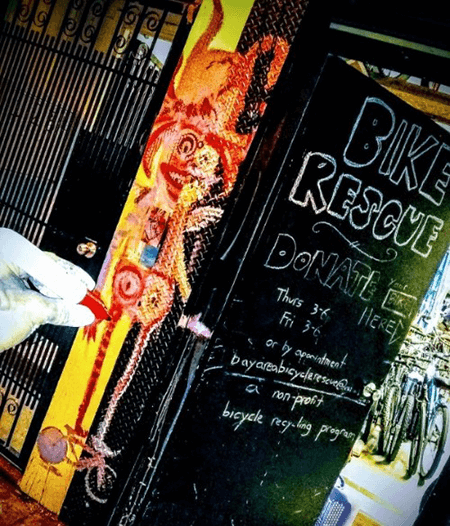 BIKE
RESCUE
DONATE
HERE!
Thurs 3-6
Fri 3-6
or by appointment
a non-profit
bicycle recycling program